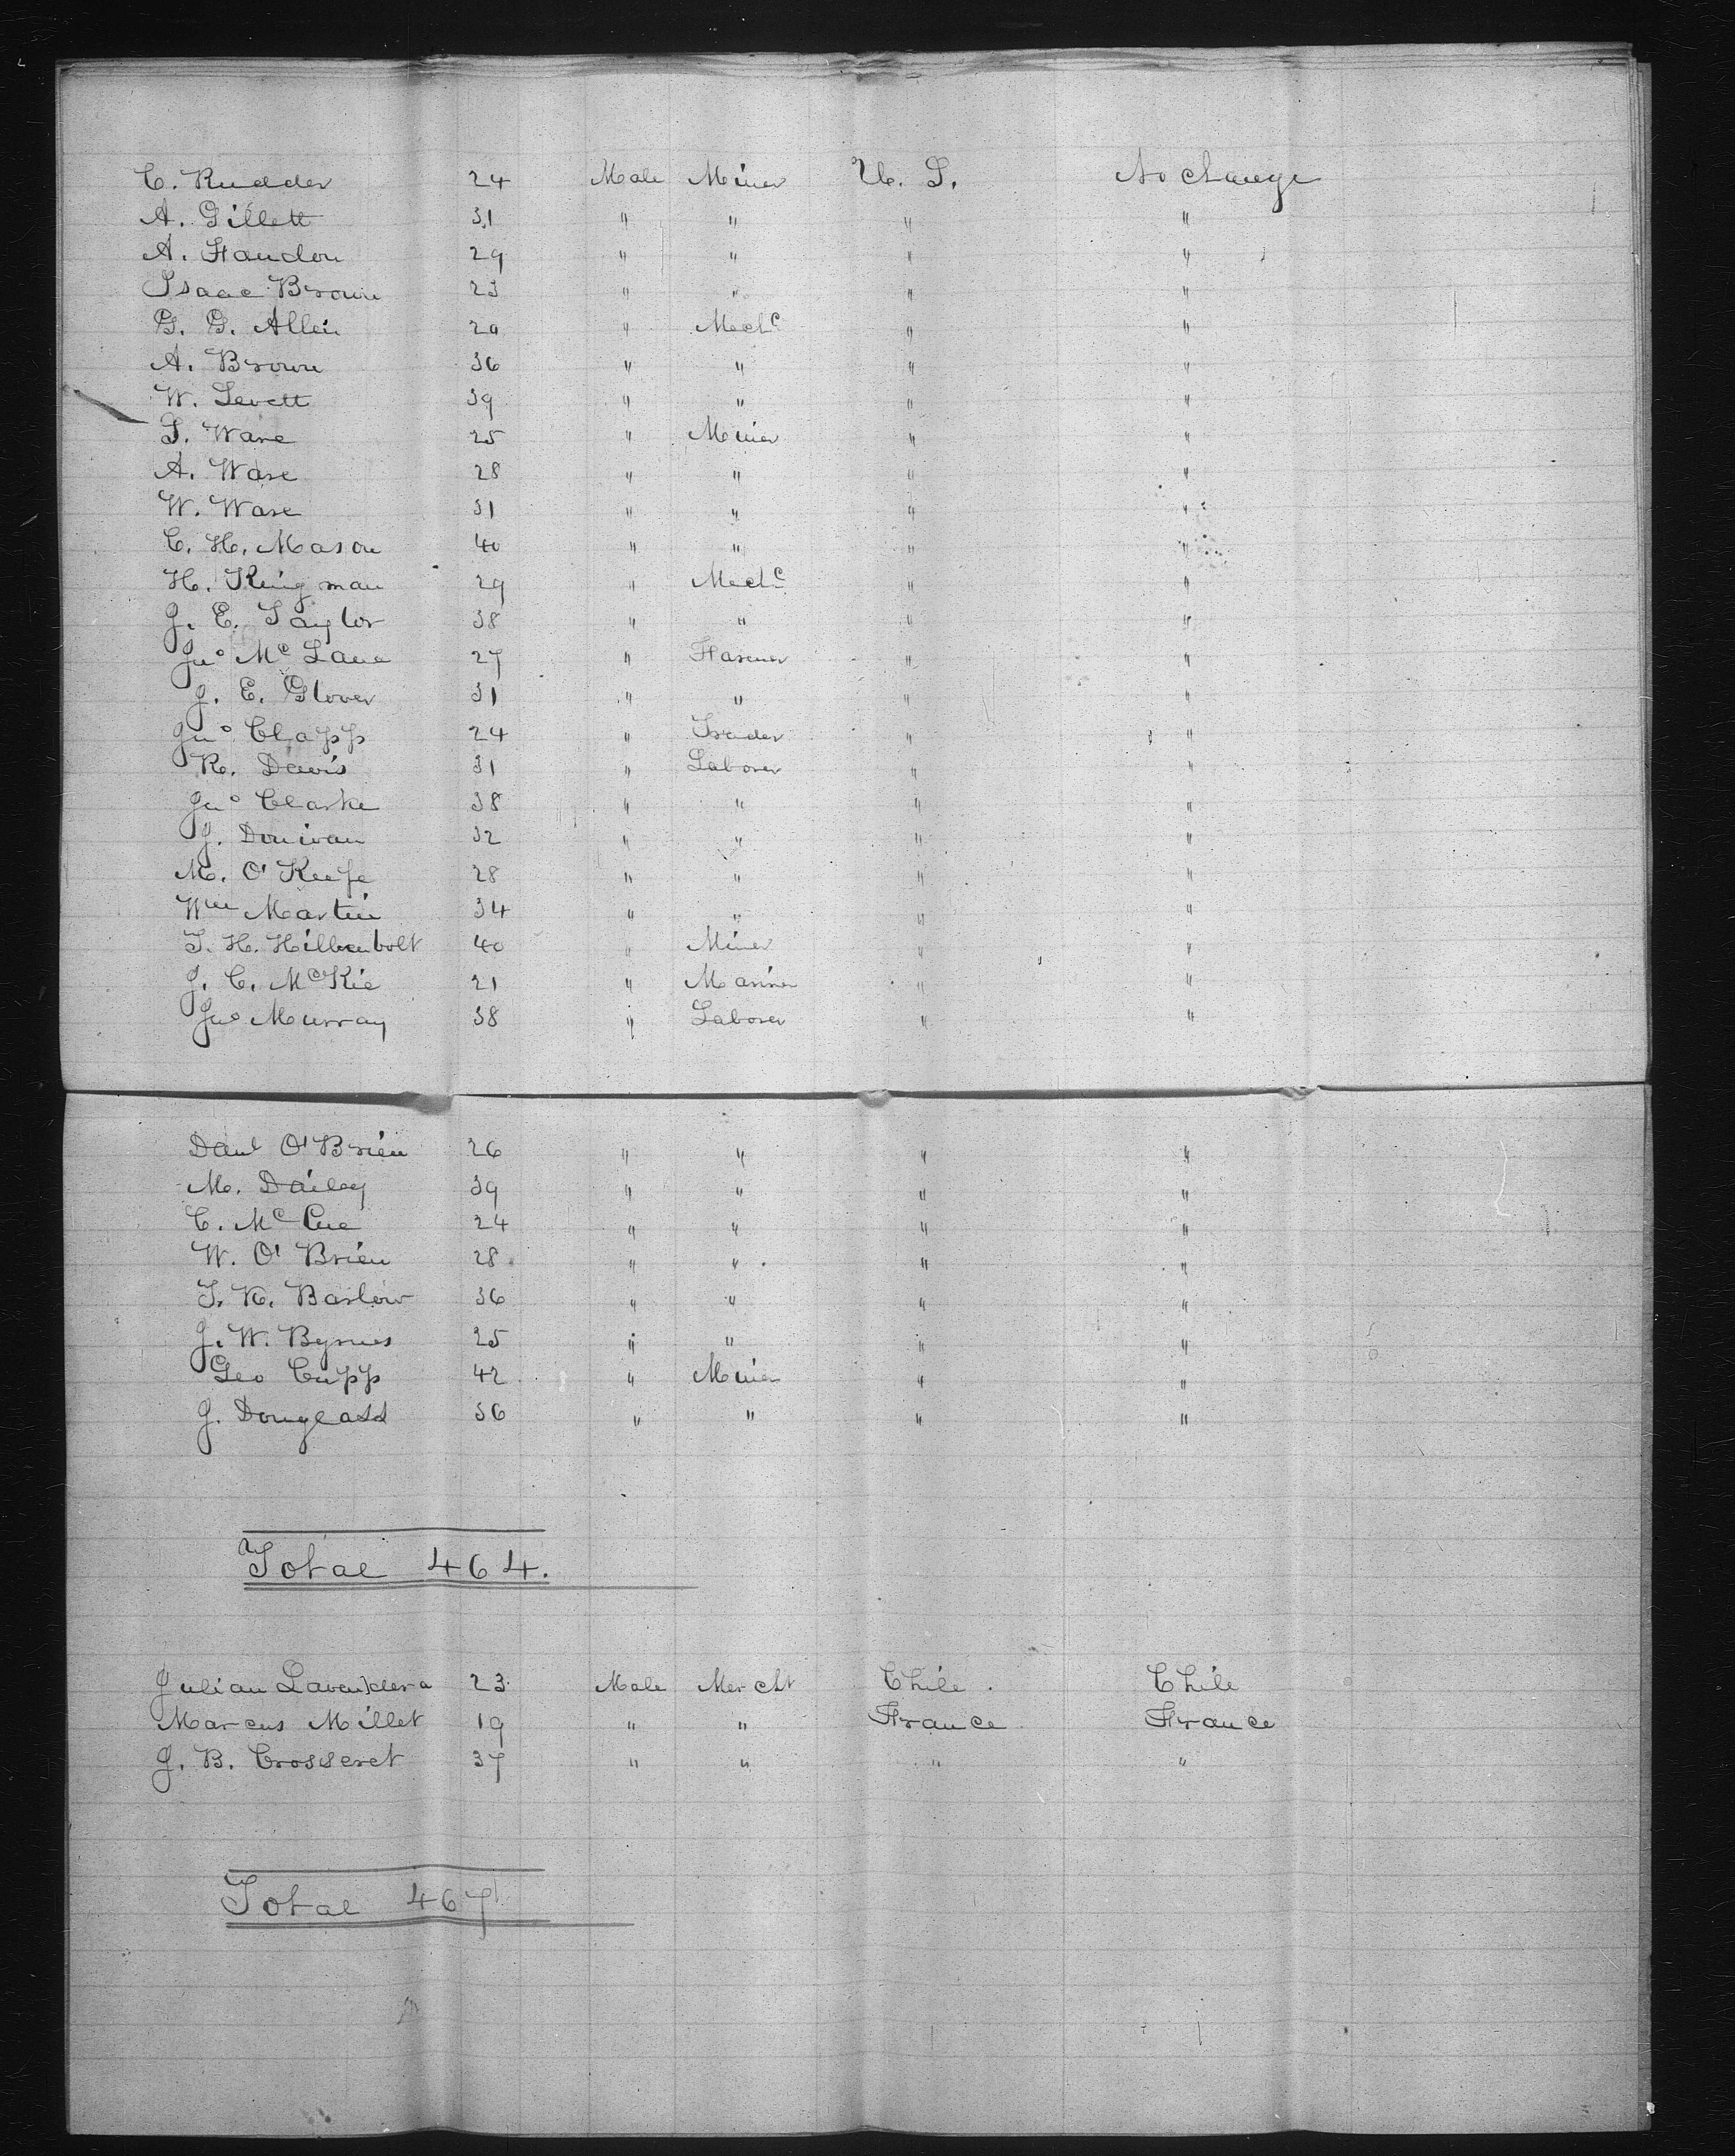 C. Rudder 24 Male Miner U. S. No change
A. Gillett 31 " " " "
A. Fandon 29 " " " "
Isaac Brown 23 " " " "
G. G. Allen 20 " Mechc " "
A. Brown 36 " " " "
W. Levett 39 " " " "
S. Ware 25 " Miner " "
A. Ware 28 " " " "
W. Ware 31 " " " "
C. H. Mason 40 " " " "
H. Kingman 29 " Mechc " "
J. E. Taylor 38 " " " "
Jno McLane 27 " Farmer " "
J. E. Glover 31 " " " "
Jno Clapp 24 " Trader " "
R. Davis 31 " Laborer " "
Jno Clarke 38 " " " "
J. Donivan 32 " " " "
M. O'Keefe 28 " " " "
Wm Martin 34 " " " "
T. H. Hillenbolt 40 " Miner " "
J. C. McKie 21 " Mariner " "
Jno Murray 38 " Laborer " "
Danl O'Brien 26 " " " "
M. Dailey 39 " " " "
C. McCue 24 " " " "
W. O'Brien 28 " " " "
T. K. Barlow 36 " " " "
J. W. Byrnes 25 " " " "
Geo Cupp 42 " Miner " "
J. Douglass 36 " " " "
Total 464.
Julian Lavendera 23 Male Mercht Chile Chile
Marcus Millet 19 " " France France
J. B. Crosseret 37 " " " "
Total 467